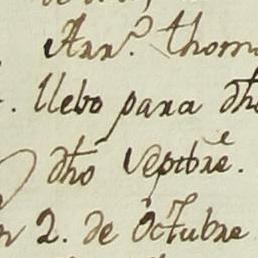 Ant.º thoma
. llebo para dho
dho Septbre.
n 2. de Octubre